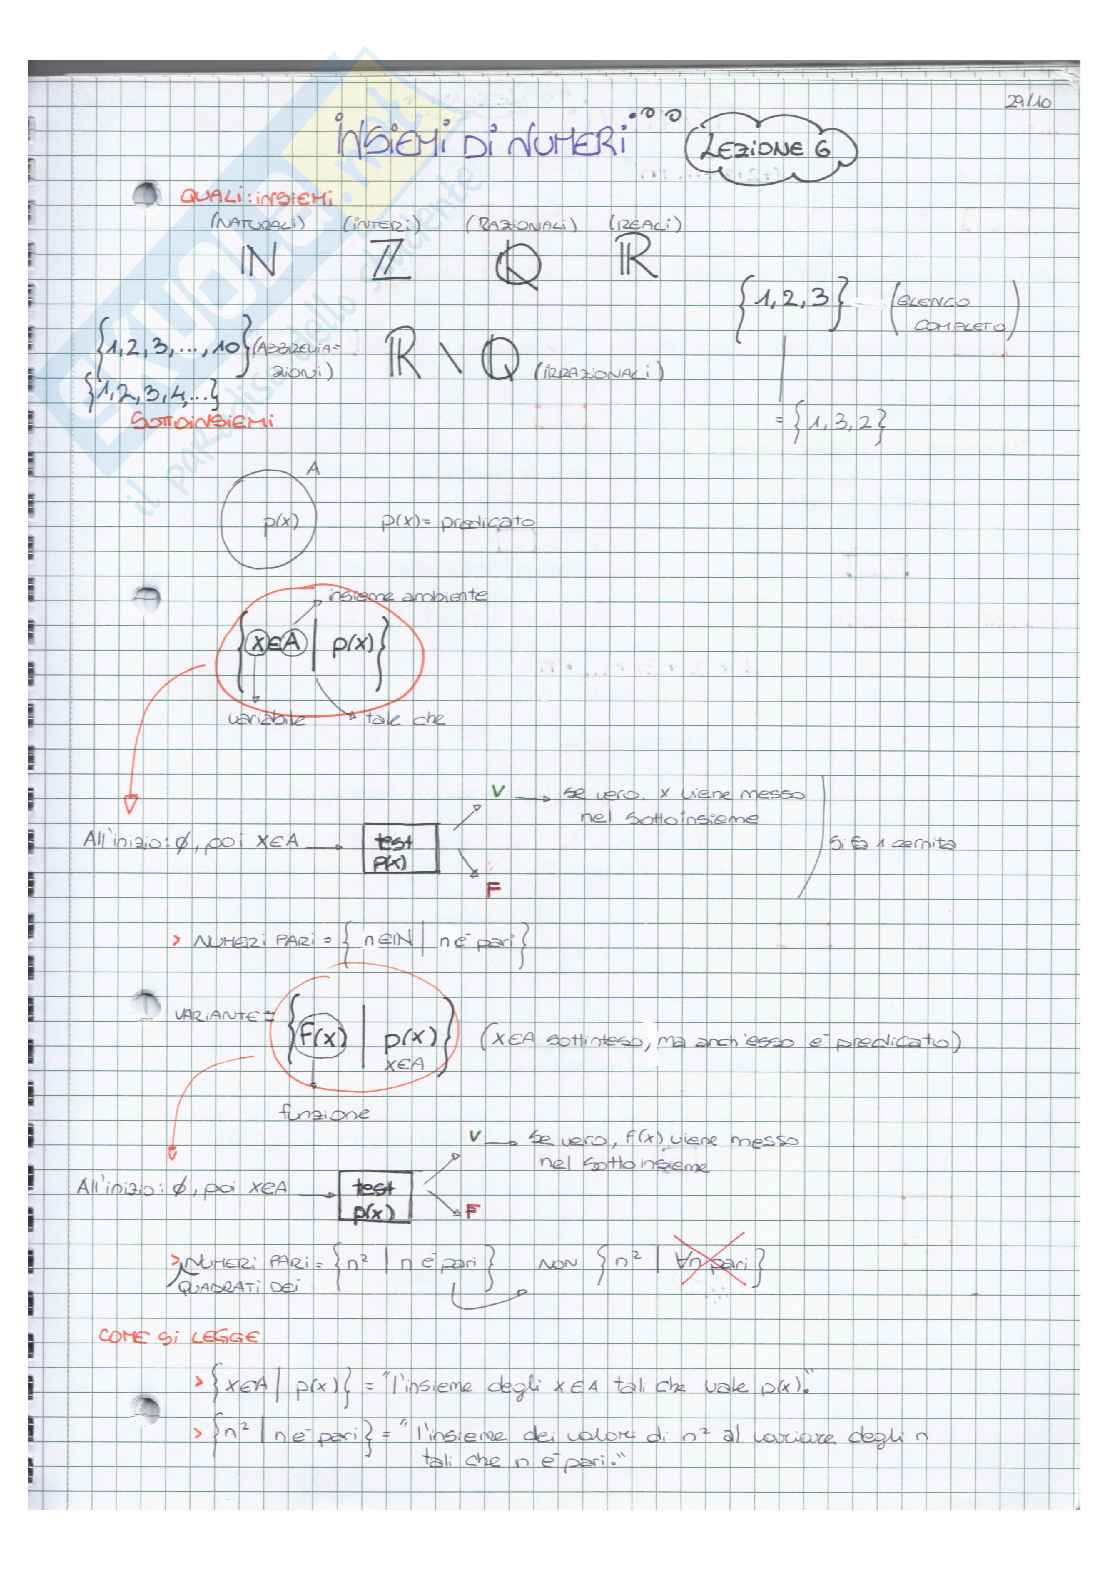 29/10
INSIEMI DI NUMERI...
LEZIONE 6
QUALI: INSIEMI
(NATURALI) (INTERI) (RAZIONALI) (REALI)
ℕ ℤ ℚ ℝ
{1, 2, 3} (ELENCO COMPLETO)
{1, 2, 3, ..., 10} (ABBREVIA=
ZIONI)
ℝ \ ℚ (IRRAZIONALI)
{1, 2, 3, 4, ...}
= {1, 3, 2}
SOTTOINSIEMI
A
p(x) p(x) = predicato
insieme ambiente
{x∈A | p(x)}
variabile tale che
V → se vero, x viene messo
nel sottoinsieme
All'inizio: ∅, poi x∈A → test
p(x)
si fa 1 cernita
F
> NUMERI PARI = {n∈ℕ | n è pari}
VARIANTE = {F(x) | p(x)} (x∈A sottinteso, ma anch'esso è predicato)
x∈A
funzione
V → se vero, F(x) viene messo
nel sottoinsieme
All'inizio: ∅, poi x∈A → test
p(x)
F
> NUMERI PARI = {n² | n è pari} NON {n² | ∀n pari}
QUADRATI DEI
COME SI LEGGE
> {x∈A | p(x)} = "l'insieme degli x∈A tali che vale p(x)."
> {n² | n è pari} = "l'insieme dei valori di n² al variare degli n
tali che n è pari."
SKUOLA.net
il paradiso dello studente